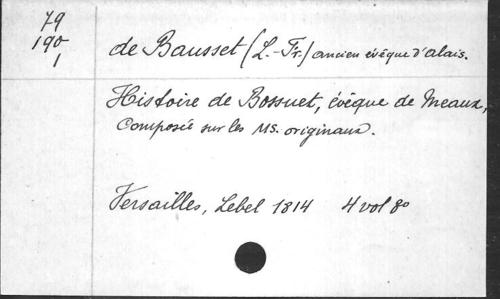 79
190
1
de Bausset (L.-Fr.) ancien évêque d'Alais.
Histoire de Bossuet, évêque de Meaux,
Composée sur les Ms. originaux.
Versailles, Lebel 1814 4 vol 8º